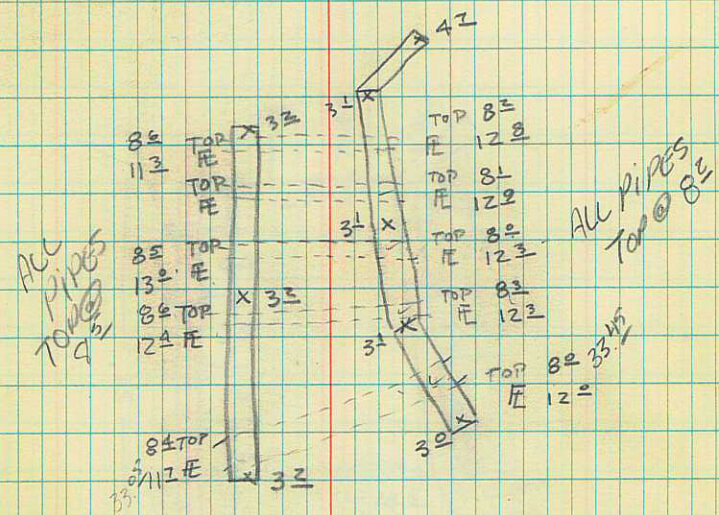 4 7
3 1
3 2
8 6 TOP
11 3 FL
TOP
FL
8 5 TOP
13 0 FL
8 6 TOP
12 4 FL
3 3
8 4 TOP
33.05/11 7 FL
3 2
ALL
PIPES
TOP @
8 5
TOP 8 2
FL 12 8
TOP 8 1
FL 12 9
3 1
TOP 8 0
FL 12 3
TOP 8 3
FL 12 3
3 1
TOP 8 0 33.45
FL 12 0
3 0
ALL PIPES
TOP @ 8 2